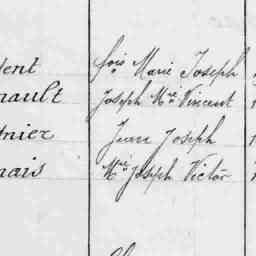 dent fois Marie Joseph
nault Joseph Mie Vincent
nier Jean Joseph
nais Mie Joseph Victor